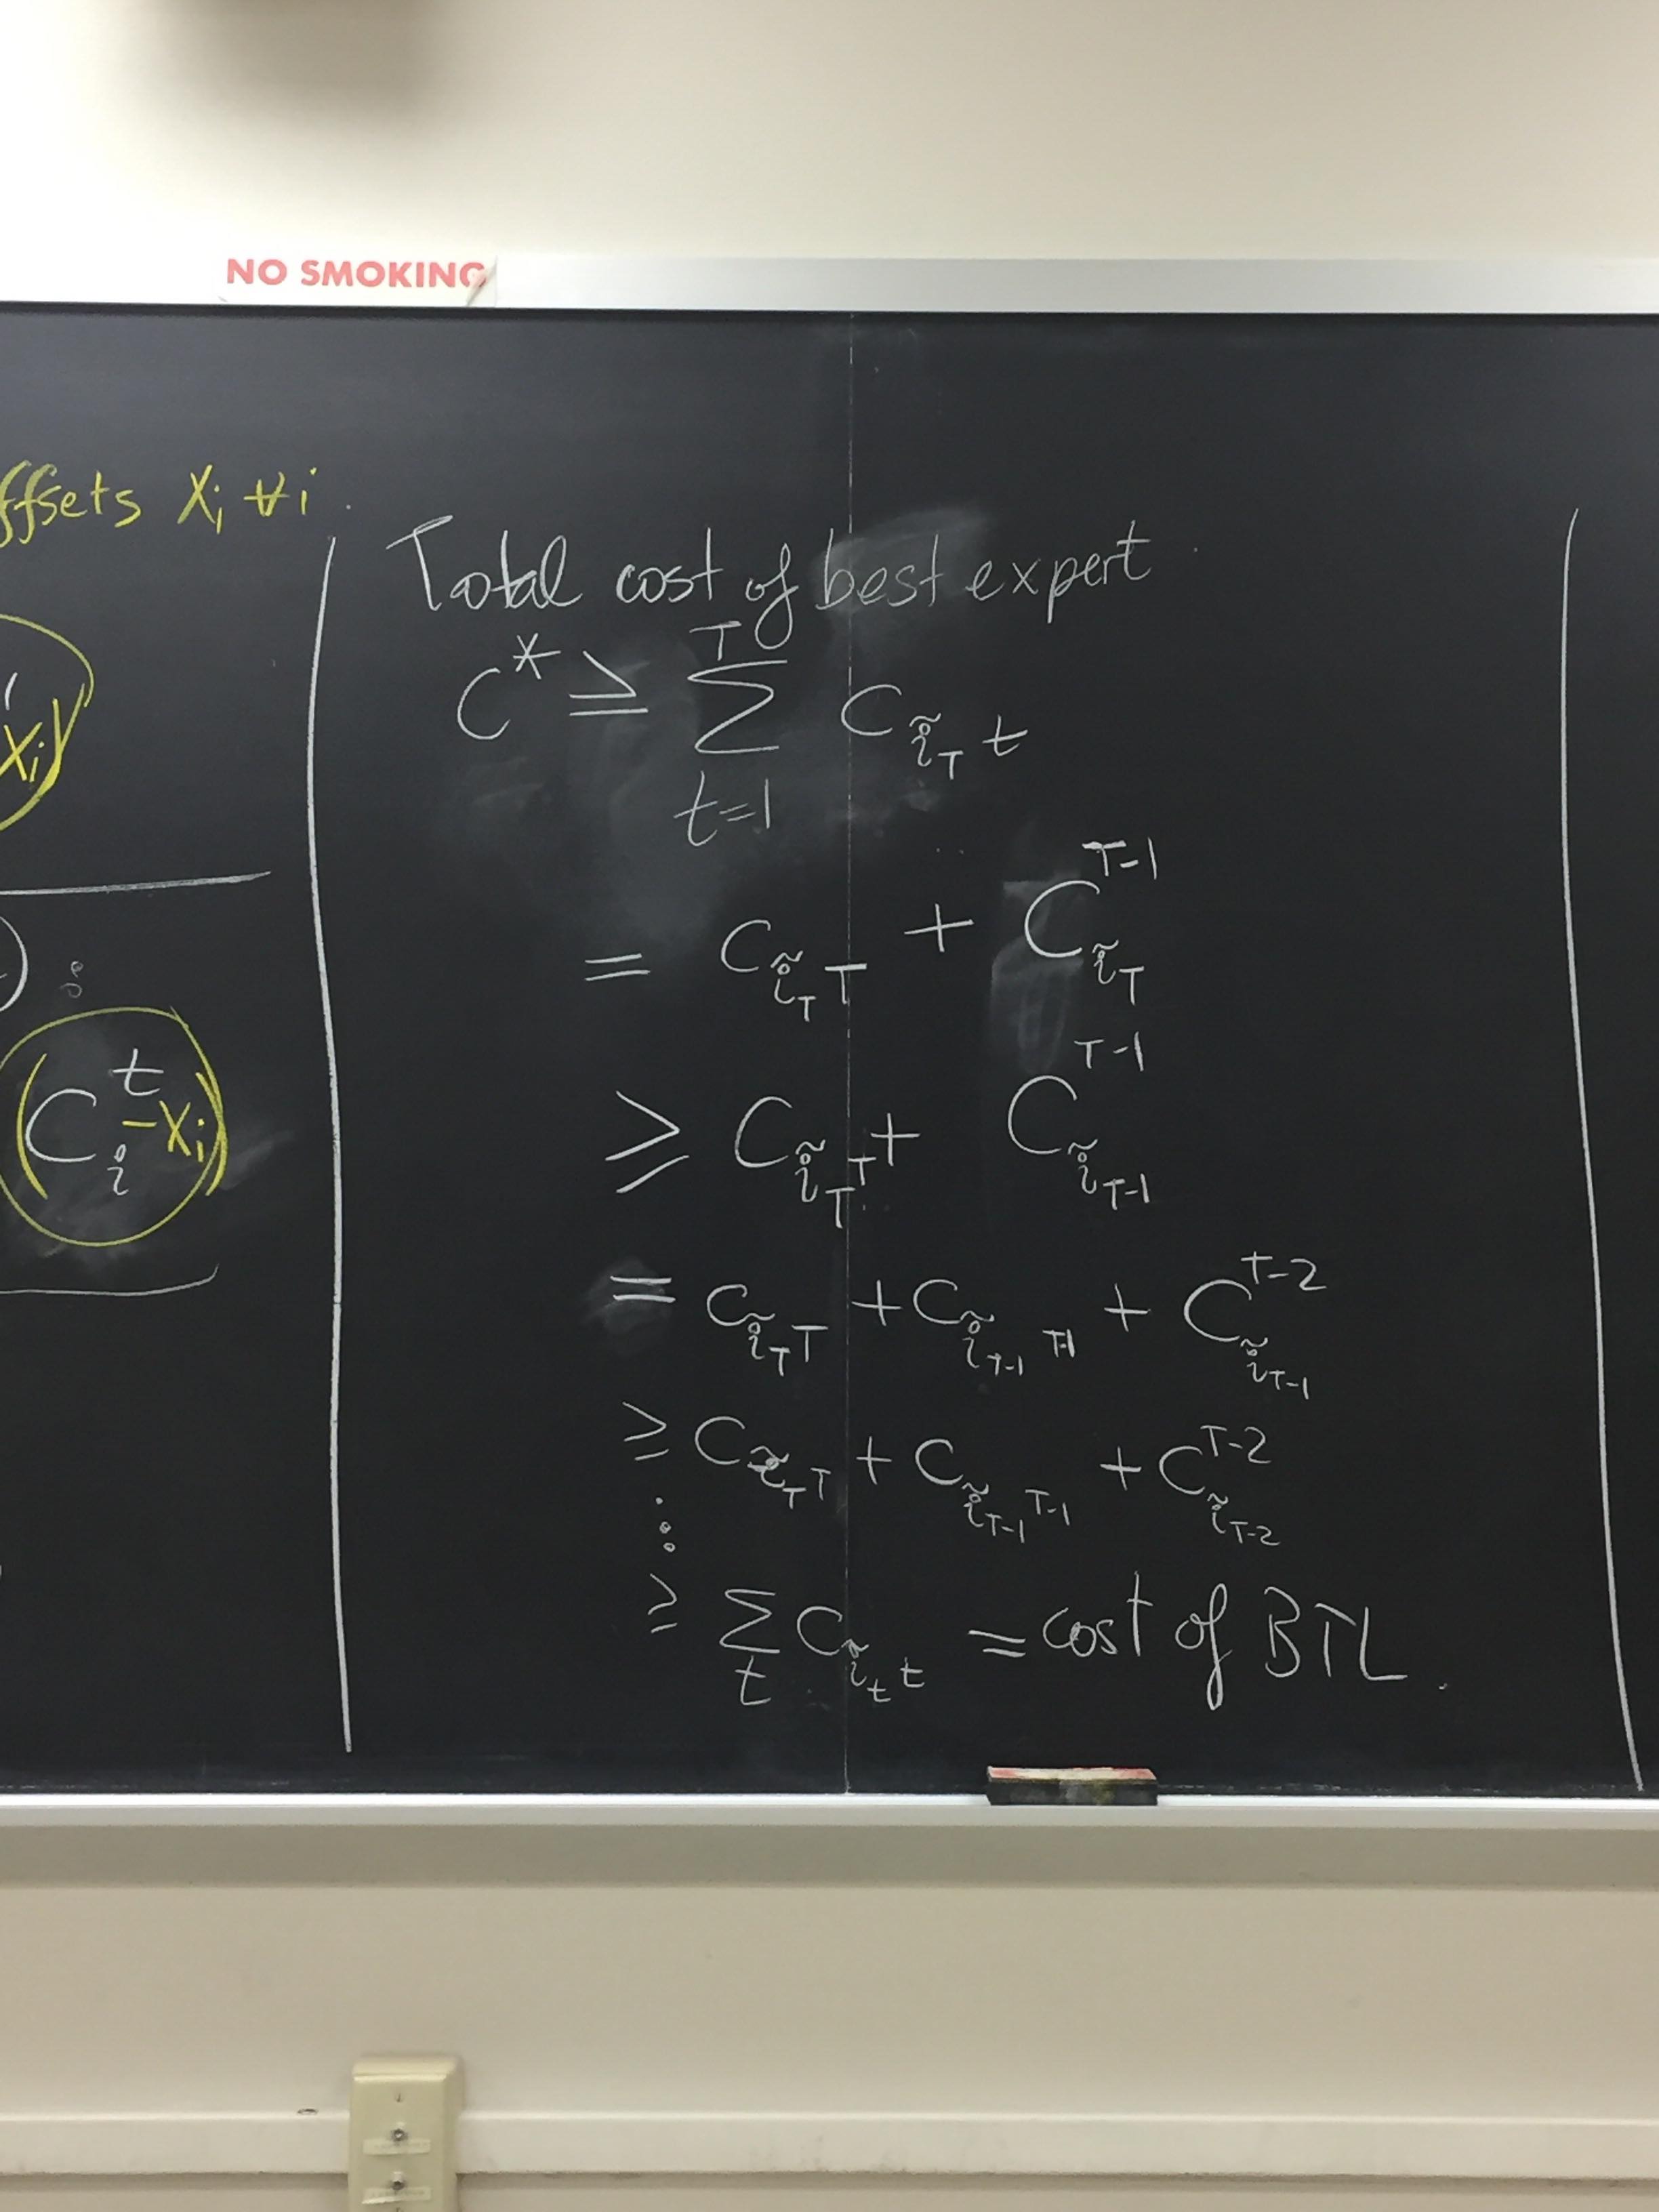 NO SMOKING
ffsets Xᵢ ∀i.
Xᵢ)
(Cᵢᵗ - Xᵢ)
Total cost of best expert
C* ≥ ∑_{t=1}^{T} c_{ĩ_T t}
= c_{ĩ_T T} + C_{ĩ_T}^{T-1}
≥ C_{ĩ_T T} + C_{ĩ_{T-1}}^{T-1}
= c_{ĩ_T T} + c_{ĩ_{T-1} T-1} + C_{ĩ_{T-1}}^{T-2}
≥ c_{ĩ_T T} + c_{ĩ_{T-1} T-1} + C_{ĩ_{T-2}}^{T-2}
⋮
≥ ∑_t c_{ĩ_t t} = cost of BTL.